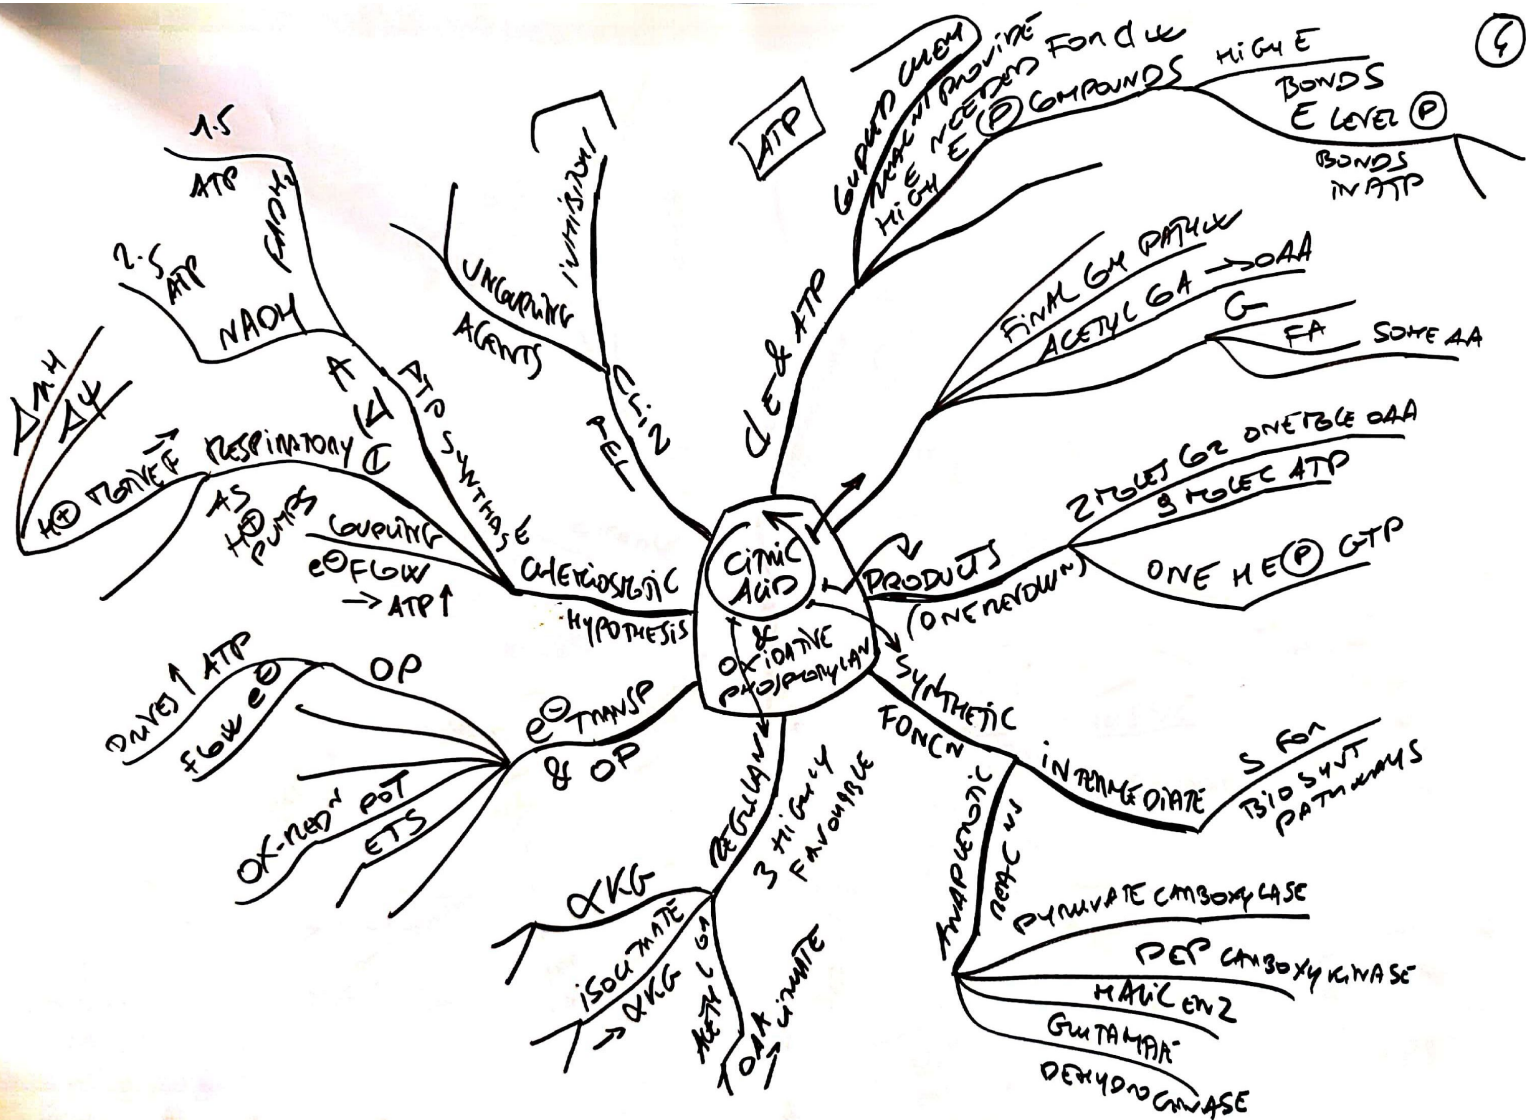 CITRIC
ACID
&
OXIDATIVE
PHOSPHORYLAN
ATP
CLE & ATP
COUPLED CHEM
REAC NT PROVIDE
E NEEDED FOR
HIGH E (P) COMPOUNDS
HIGH E
BONDS
E LEVEL (P)
BONDS
IN ATP
FINAL COM PATHW
ACETYL COA → OAA
G
FA
SOME AA
PRODUCTS
(ONE REVOLUN)
2 MOLES CO2 ONE MOLE OAA
9 MOLEC ATP
ONE HE (P) GTP
SYNTHETIC
FONCN
INTERMEDIATE
S FOR
BIOSYNT
PATHWAYS
ANAPLEROTIC
REAC NS
PYRUVATE CARBOXYLASE
PEP CARBOXYKINASE
MALIC ENZ
GLUTAMATE
DEHYDROGENASE
REGULAN
3 HIGHLY
FAVOURABLE
αKG
ISOCITRATE
→ αKG
ACETYL COA
OAA
→ CITRATE
e⊖ TRANSP
& OP
OP
DRIVES ↑ ATP
FLOW e⊖
OX-REDN POT
ETS
CHEMIOSMOTIC
HYPOTHESIS
COUPLING
e⊖ FLOW
→ ATP ↑
RESPIRATORY
AS
H⊕
PUMPS
H⊕ MOTIVE F
ΔμH
Δψ
ATP SYNTHASE
NADH
2.5
ATP
FADH2
1.5
ATP
CLIN
REL
UNCOUPLING
AGENTS